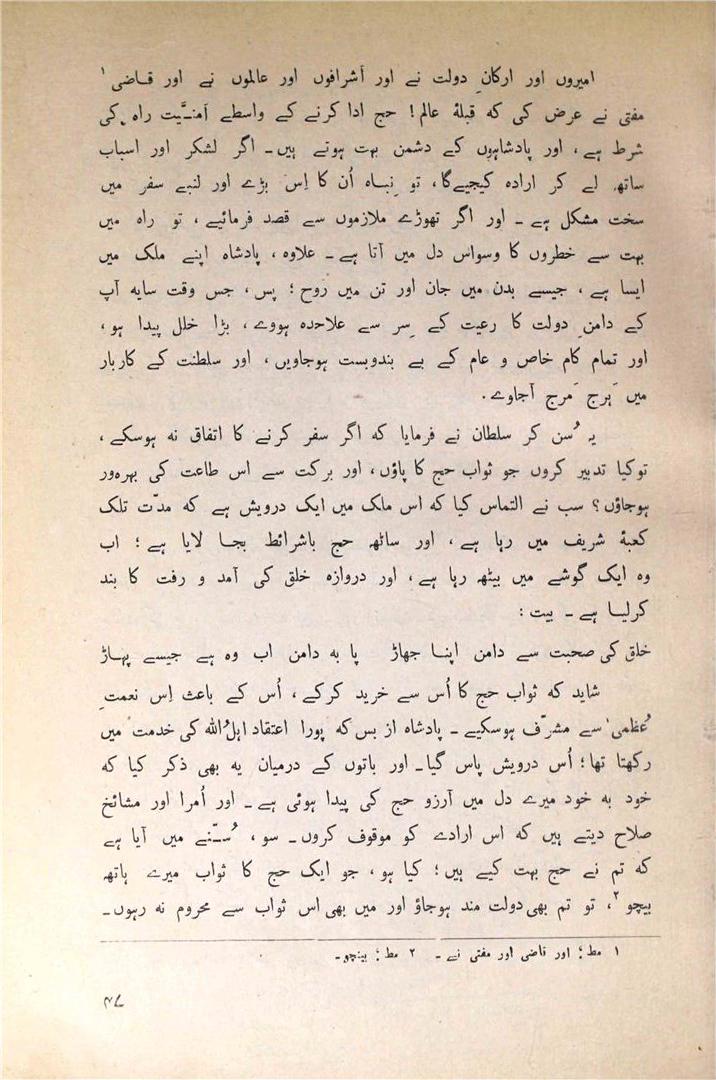 امیروں اور ارکانِ دولت نے اور اَشرافوں اور عالموں نے اور قاضی ۱
مفتی نے عرض کی کہ قبلۂ عالم! حج ادا کرنے کے واسطے اَمنیّت راہ کی
شرط ہے، اور پادشاہوں کے دشمن بہت ہوتے ہیں۔ اگر لشکر اور اسباب
ساتھ لے کر ارادہ کیجیےگا، تو نِباہ اُن کا اِس بڑے اور لنبے سفر میں
سخت مشکل ہے۔ اور اگر تھوڑے ملازموں سے قصد فرمائیے، تو راہ میں
بہت سے خطروں کا وسواس دل میں آتا ہے۔ علاوہ، پادشاہ اپنے ملک میں
ایسا ہے، جیسے بدن میں جان اور تن میں روح؛ پس، جس وقت سایہ آپ
کے دامنِ دولت کا رعیت کے سِر سے علاحدہ ہووے، بڑا خلل پیدا ہو،
اور تمام کام خاص و عام کے بے بندوبست ہوجاویں، اور سلطنت کے کاربار
میں ہَرج مَرج آجاوے.
یہ سُن کر سلطان نے فرمایا کہ اگر سفر کرنے کا اتفاق نہ ہوسکے،
توکیا تدبیر کروں جو ثواب حج کا پاؤں، اور برکت سے اس طاعت کی بہرہور
ہوجاؤں؟ سب نے التماس کیا کہ اس ملک میں ایک درویش ہے کہ مدّت تلک
کعبۂ شریف میں رہا ہے، اور ساٹھ حج باشرائط بجا لایا ہے؛ اب
وہ ایک گوشے میں بیٹھ رہا ہے، اور دروازہ خلق کی آمد و رفت کا بند
کرلیا ہے۔ بیت:
خلق کی صحبت سے دامن اپنا جھاڑ پا بہ دامن اب وہ ہے جیسے پہاڑ
شاید کہ ثواب حج کا اُس سے خرید کرکے، اُس کے باعث اِس نعمتِ
عُظمیٰ سے مشرّف ہوسکیے۔ پادشاہ از بس کہ پورا اعتقاد اہلُ اللہ کی خدمت میں
رکھتا تھا؛ اُس درویش پاس گیا۔ اور باتوں کے درمیان یہ بھی ذکر کیا کہ
خود بہ خود میرے دل میں آرزو حج کی پیدا ہوئی ہے۔ اور اُمرا اور مشائخ
صلاح دیتے ہیں کہ اس ارادے کو موقوف کروں۔ سو، سُنّے میں آیا ہے
کہ تم نے حج بہت کیے ہیں؛ کیا ہو، جو ایک حج کا ثواب میرے ہاتھ
بیچو ۲، تو تم بھی دولت مند ہوجاؤ اور میں بھی اس ثواب سے محروم نہ رہوں۔
۱ مط؛ اور قاضی اور مفتی نے۔ ۲ مط؛ بینچو۔